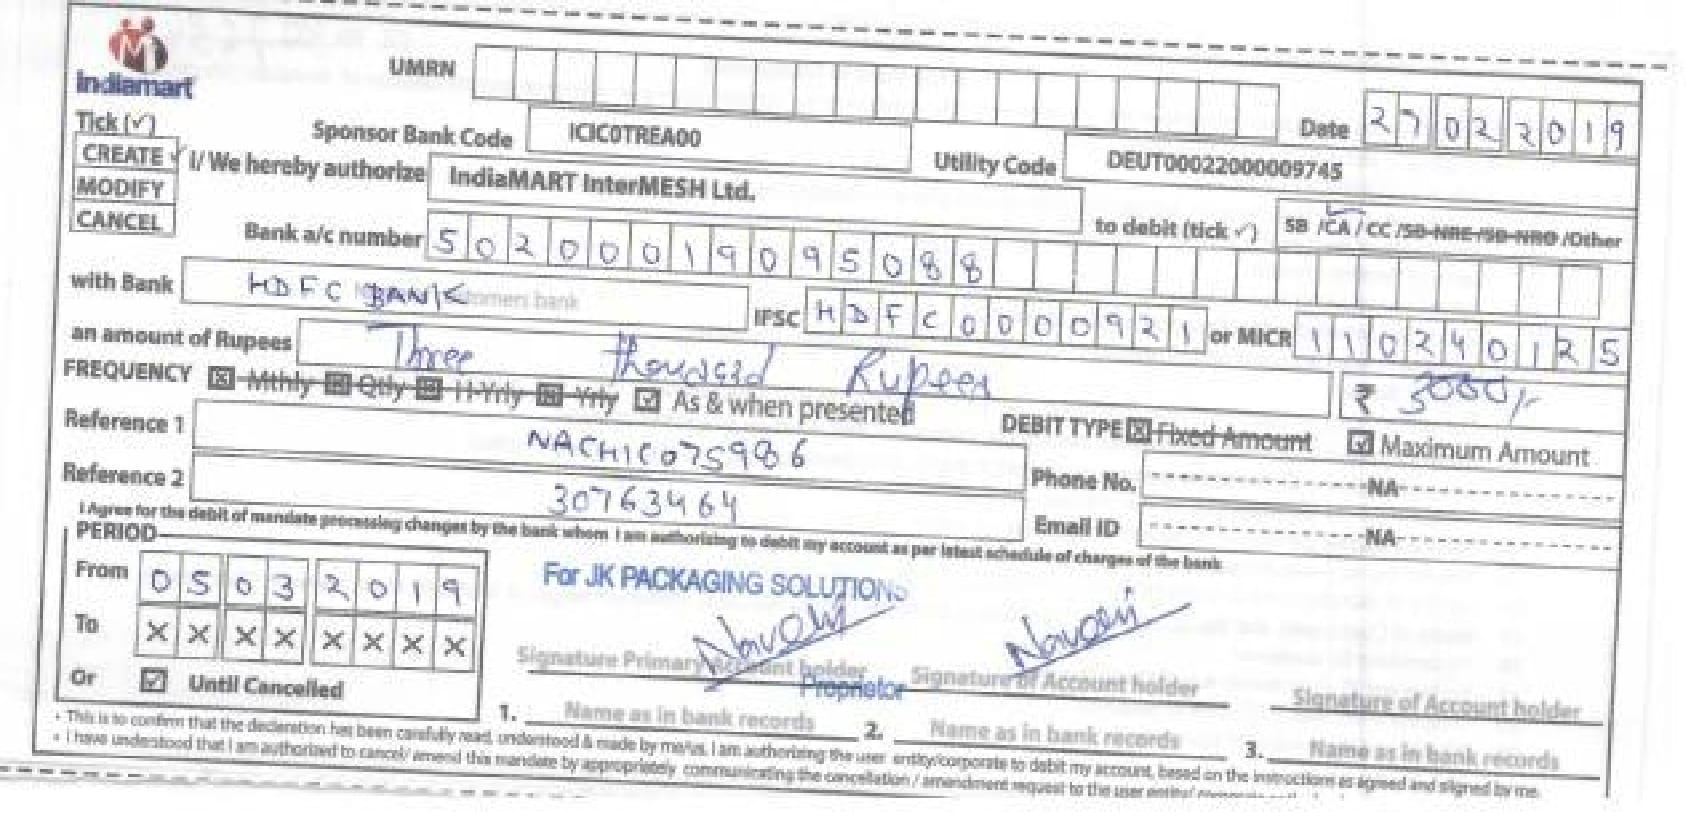 indiamart
UMRN
Date 27022019
Tick (✓)
Sponsor Bank Code ICIC0TREA00 Utility Code DEUT00022000009745
CREATE ✓
MODIFY
CANCEL
I/ We hereby authorize IndiaMART InterMESH Ltd. to debit (tick ✓) SB /CA / CC /SB-NRE /SB-NRO /Other
Bank a/c number 50200019095088
with Bank HDFC BANK IFSC HDFC0000921 or MICR 110240125
an amount of Rupees Three thousand Rupees ₹ 3000/-
FREQUENCY Mthly Qtly H-Yrly Yrly As & when presented DEBIT TYPE Fixed Amount Maximum Amount
Reference 1 Phone No. NA
Reference 2 30763464 Email ID NA
I Agree for the debit of mandate processing charges by the bank whom I am authorizing to debit my account as per latest schedule of charges of the bank
PERIOD
From 05032019
To XXXXXXXX
Or Until Cancelled
For JK PACKAGING SOLUTIONS
Signature Primary Account holder Signature of Account holder Signature of Account holder
Proprietor
1. Name as in bank records 2. Name as in bank records 3. Name as in bank records
• This is to confirm that the declaration has been carefully read, understood & made by me/us. I am authorizing the user entity/corporate to debit my account, based on the instructions as agreed and signed by me.
• I have understood that I am authorized to cancel/ amend this mandate by appropriately communicating the cancellation / amendment request to the user entity/ corporate